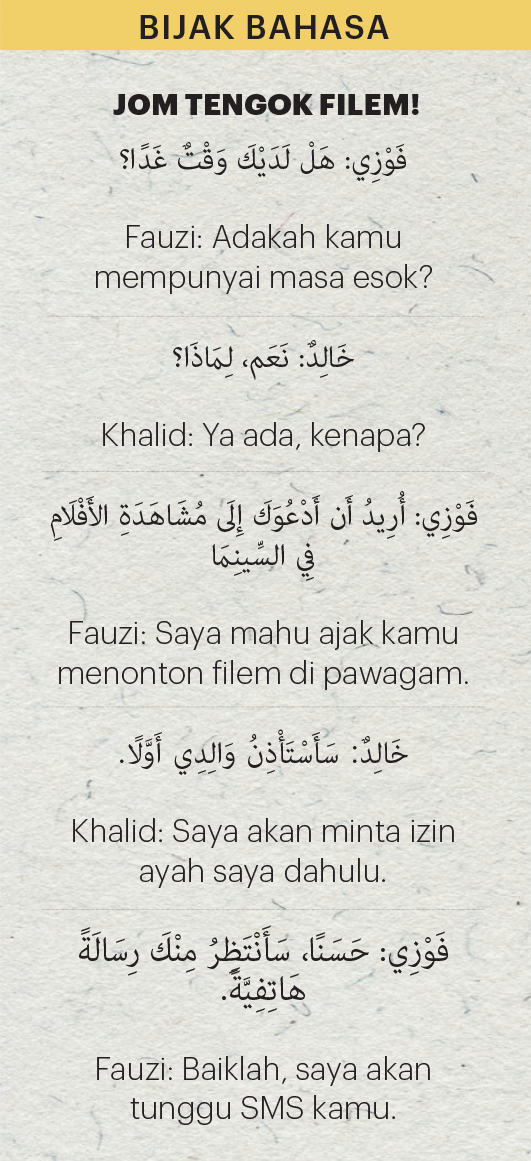 BIJAK BAHASA
JOM TENGOK FILEM!
فَوْزِي: هَلْ لَدَيْكَ وَقْتٌ غَدًا؟
Fauzi: Adakah kamu
mempunyai masa esok?
خَالِدٌ: نَعَم، لِمَاذَا؟
Khalid: Ya ada, kenapa?
فَوْزِي: أُرِيدُ أَن أَدْعُوَكَ إِلَى مُشَاهَدَةِ الأَفْلَامِ
فِي السِّينِمَا
Fauzi: Saya mahu ajak kamu
menonton filem di pawagam.
خَالِدٌ: سَأَسْتَأْذِنُ وَالِدِي أَوَّلًا.
Khalid: Saya akan minta izin
ayah saya dahulu.
فَوْزِي: حَسَنًا، سَأَنْتَظِرُ مِنْكَ رِسَالَةً
هَاتِفِيَّةً.
Fauzi: Baiklah, saya akan
tunggu SMS kamu.